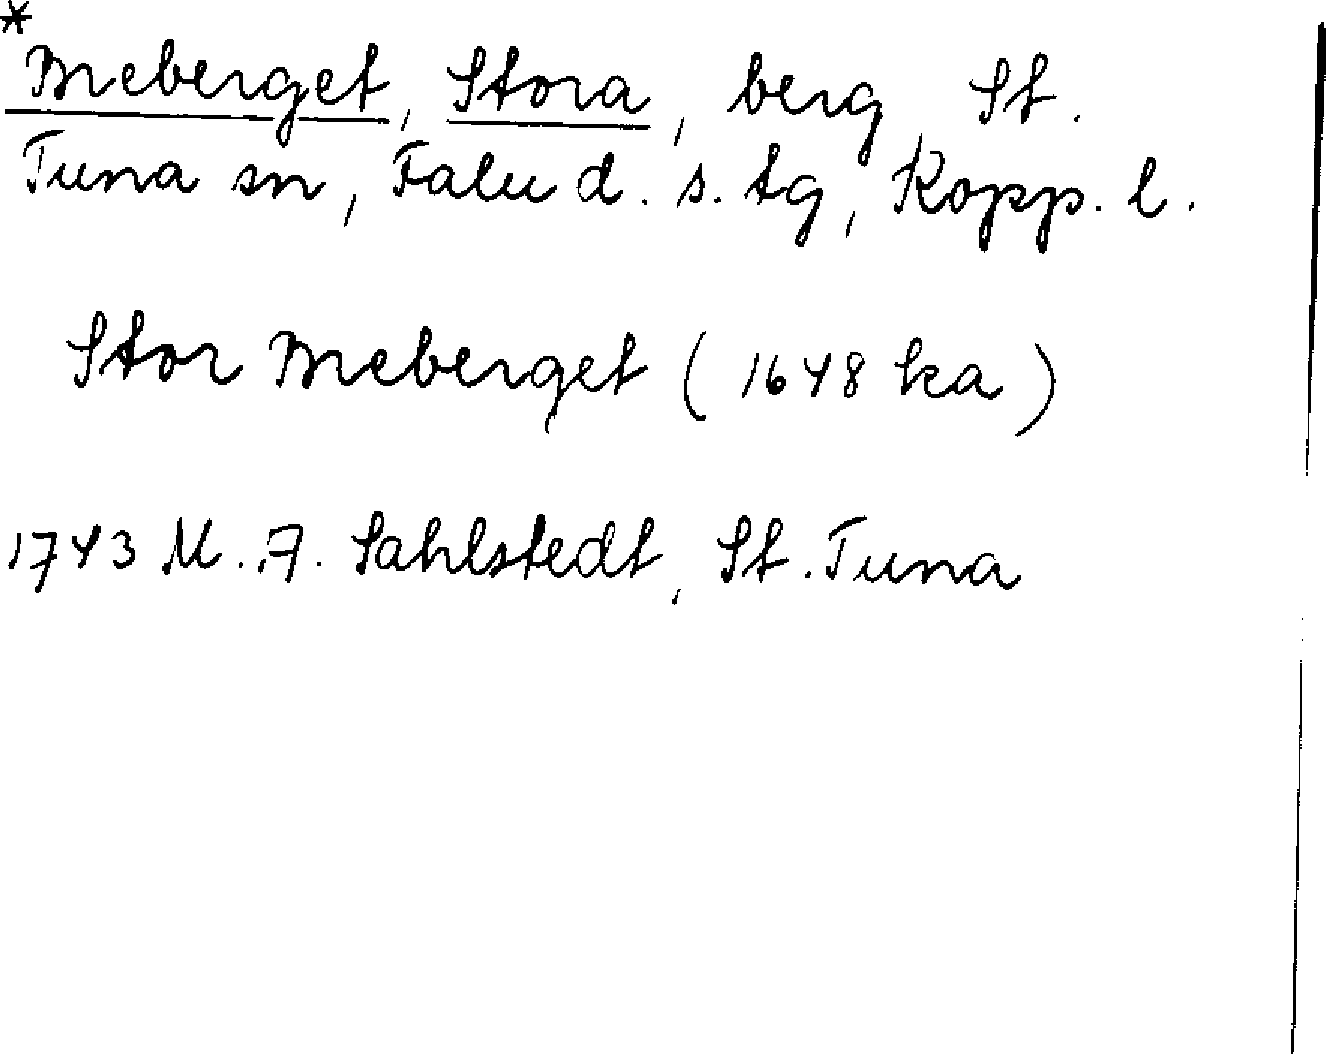 *
Breberget, Stora, berg St.
Tuna sn, Falu d. s. tg, Kopp. l.
Stor Breberget (1648 ka)
1743 M. A. Sahlstedt, St. Tuna